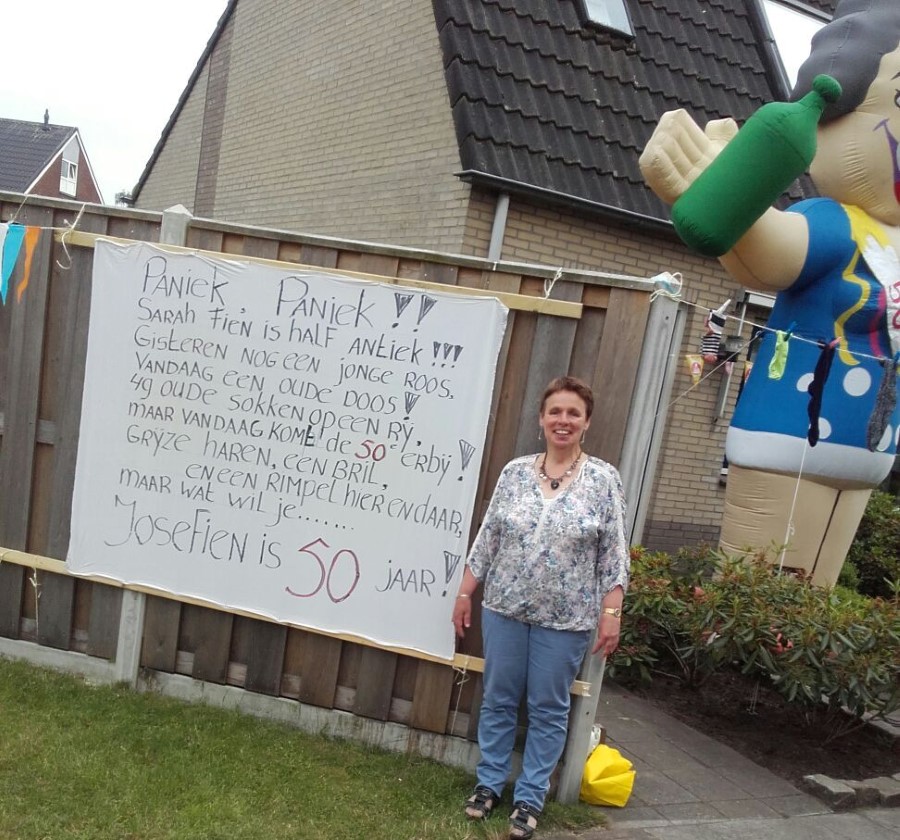 PANIEK, PANIEK!!
SARAH FIEN, IS HALF ANTIEK!!!
GISTEREN NOG EEN JONGE ROOS,
VANDAAG EEN OUDE DOOS!
49 OUDE SOKKEN OP EEN RY,
MAAR VANDAAG KOMt de 50e ERBIJ!
GRIJZE HAREN, EEN BRIL,
EN EEN RIMPEL HIER EN DAAR,
MAAR WAT WIL JE.......
JOSEFIEN IS 50 JAAR!